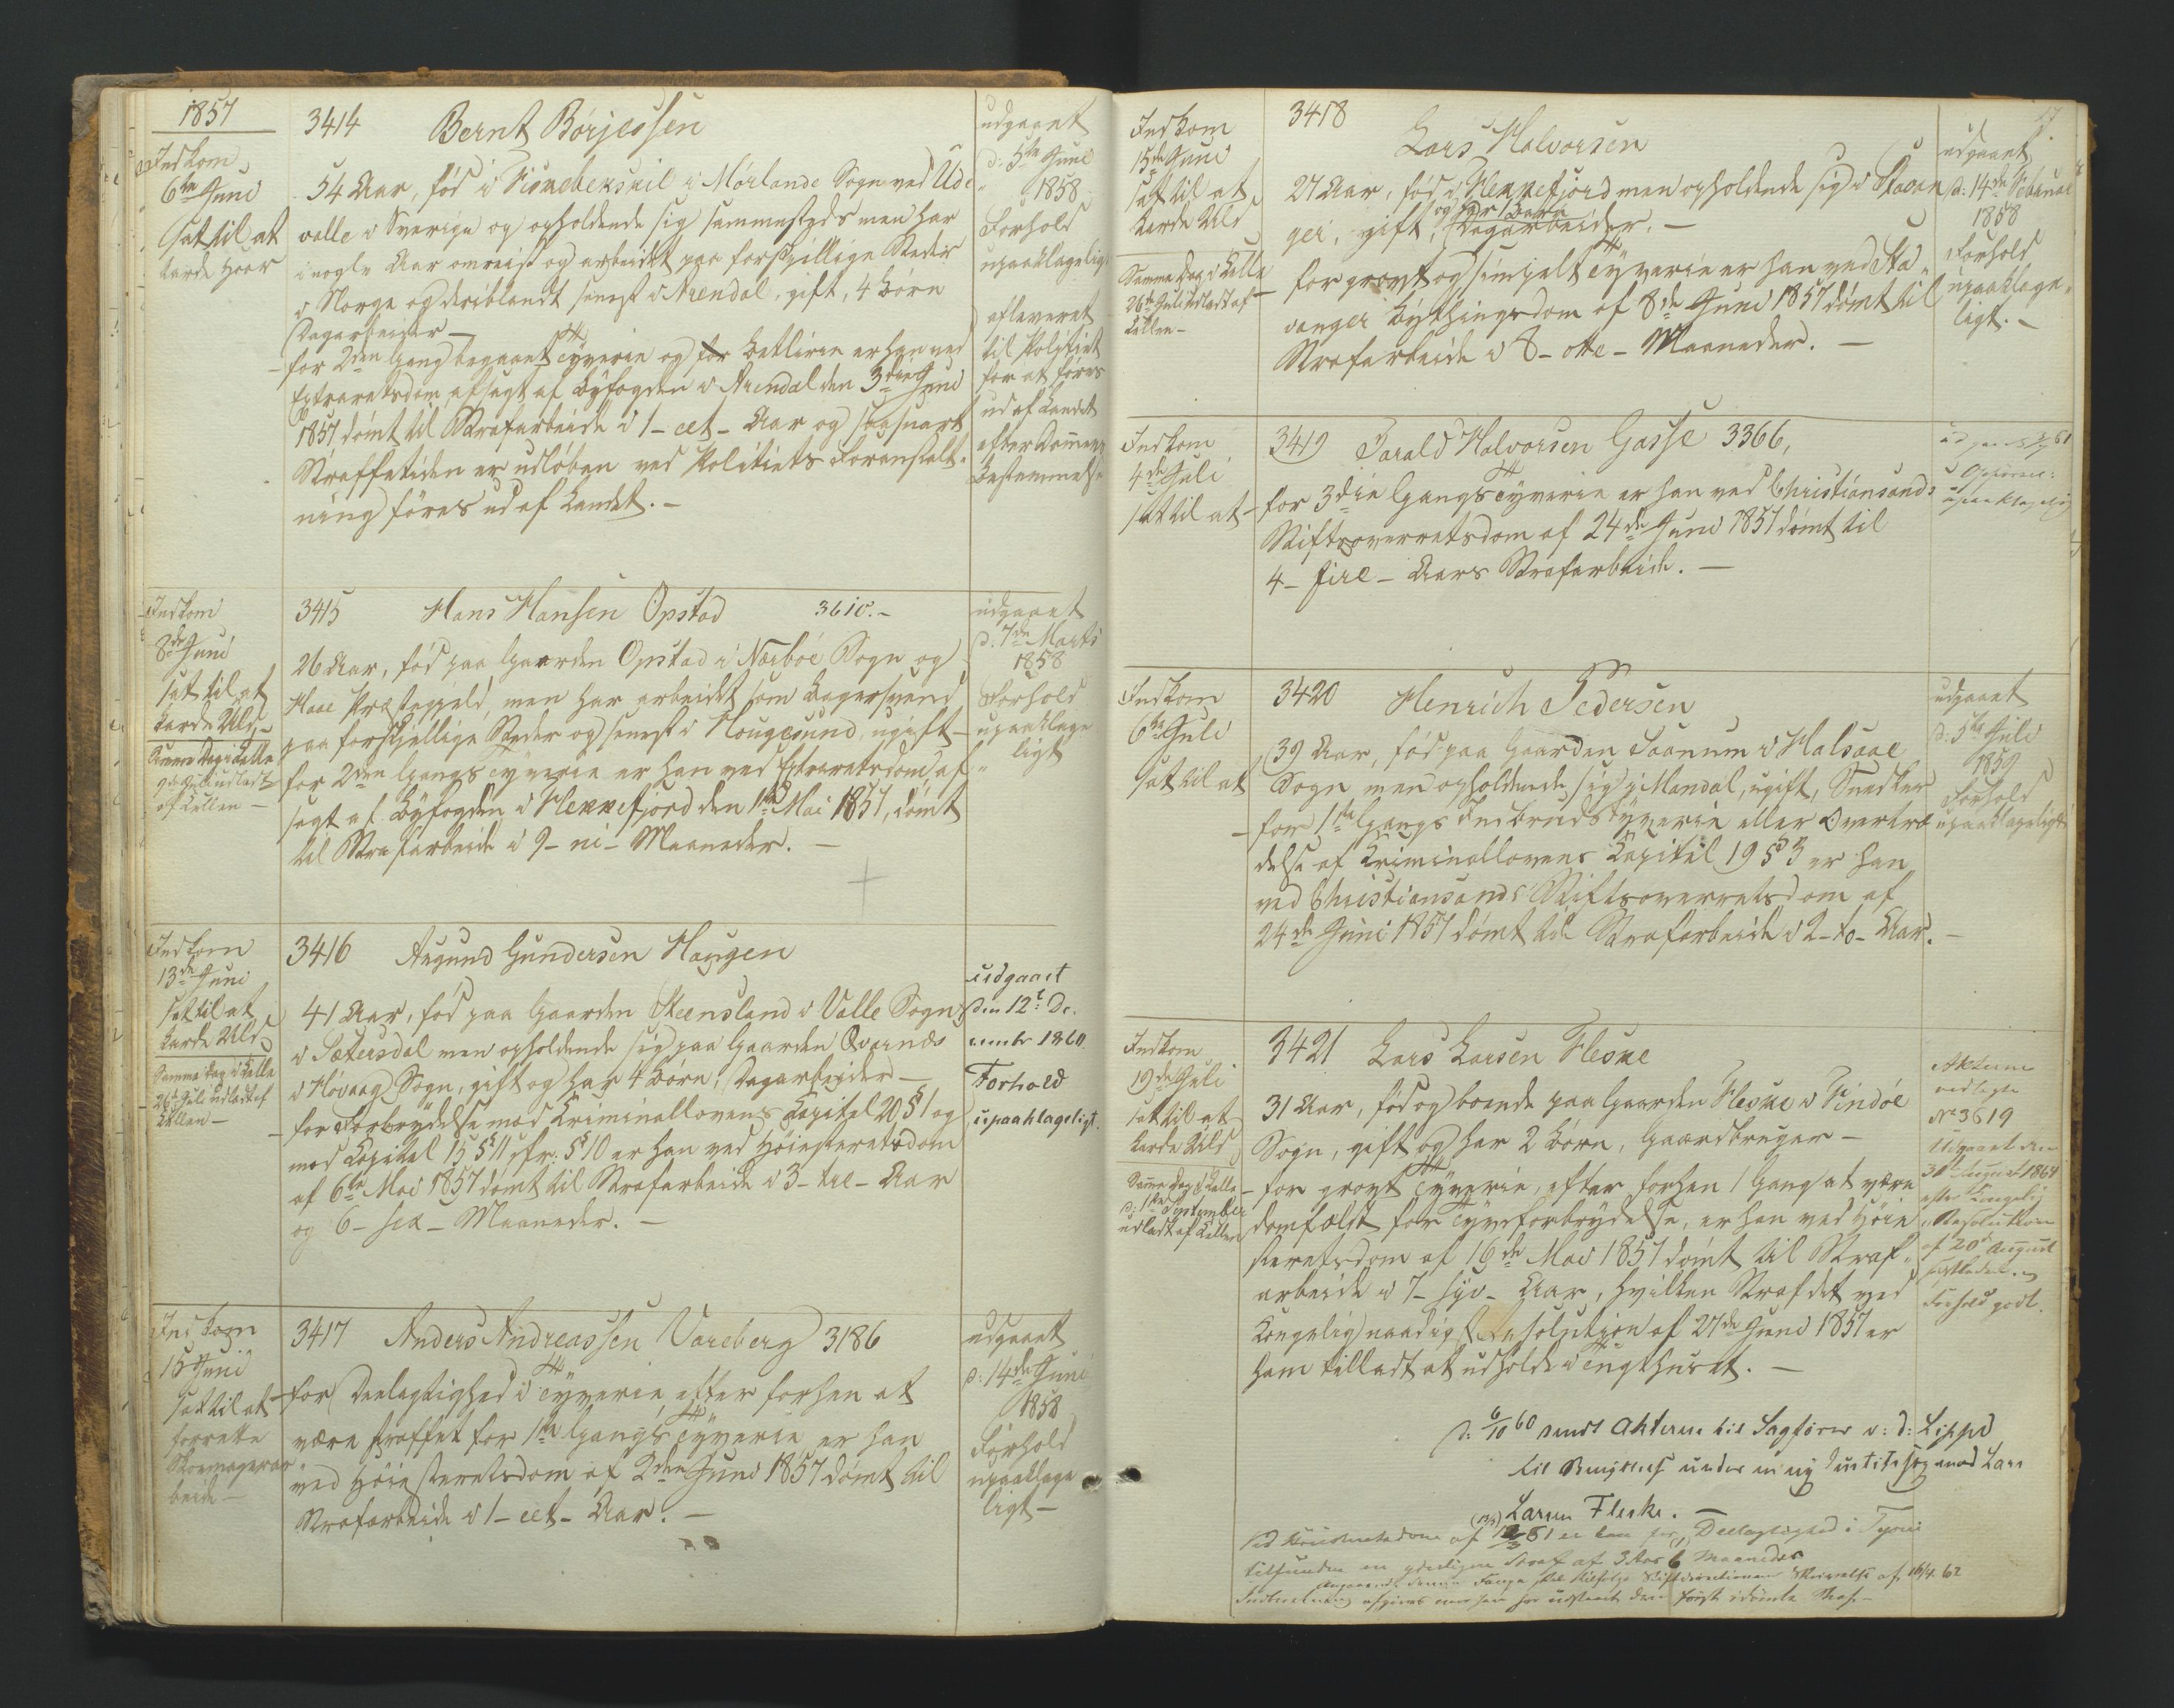 1857
Indkom
6te Juni
sat til at
karde Haar
3414 Bernt Börjessen
54 Aar, fød i Fiskebekskil i Mörlande Sogn ved Ude
valle i Sverige og opholdende sig sammesteds men har
i nogle Aar omreist og arbeidet paa forskjellige Steder
i Norge og deriblandt senest i Arendal, gift, 4 Børn
Dagarbeider —
for 2den Gang begaaet Tyverie og for Betlerie er han ved
Extraretsdom afsagt af Byfogden i Arendal den 3die Juni
1857 dömt til Strafarbeide i 1 - eet - Aar og saasnart
Straffetiden er udløben ved Politiets Foranstalt-
ning føres ud af Landet. —
udgaaet
d: 5te Juni
1858
Forhold
upaaklageligt
afleveret
til Politiet
for at føres
ud af Landet
efter Dommens
Bestemmelse
Indkom
8de Juni
sat til at
karde Uld,
Samme Dag i Celle
9de Juli udladt
af Cellen —
3415 Hans Hansen Opstad 3610. -
26 Aar, fød paa Gaarden Opstad i Nærböe Sogn og
Haae Præstegjeld, men har arbeidet som Bagersvend
paa forskjellige Steder og senest i Hougesund, ugift —
for 2den Gangs Tyverie er han ved Extraretsdom af-
sagt af Byfogden i Flekkefjord den 1ste Mai 1857, dömt
til Strafarbeide i 9 - ni - Maaneder. —
udgaaet
d. 7de Marts
1858
Forhold
upaaklage
ligt
Indkom
13de Juni
sat til at
karde Uld
Samme Dag i Celle
26de Juli udladt af
Cellen —
3416 Augund Gundersen Haugen
41 Aar, fød paa Gaarden Steensland i Valle Sogn
i Sætersdal men opholdende sig paa Gaarden Qvarnæs
i Hövaag Sogn, gift og har 4 Børn, Dagarbeider —
for Forbrydelse mod Kriminallovens Kapitel 20 § 1 og
mod Kapitel 15 § 11 jfr. § 10 er han ved Höiesteretsdom
af 6te Mai 1857 dömt til Strafarbeide i 3 - tre - Aar
og 6 - sex - Maaneder. —
udgaaet
den 12t De-
cember 1860
Forhold
upaaklageligt.
Indkom
15 Juni
sat til at
forrette
Skomagerar
beide —
3417 Anders Andreassen Vareberg 3186
for Deelagtighed i Tyverie, efter forhen at
være straffet for 1ste Gangs Tyverie er han
ved Höiesteretsdom af 2den Juni 1857 dömt til
Strafarbeide i 1 - eet - Aar. —
udgaaet
d: 14de Juni
1858
Forhold
upaaklage
ligt —
17
Indkom
15de Juni
sat til at
karde Uld
Samme Dag i Celle
26de Juli udladt af
Cellen —
3418
Lars Halvorsen
27 Aar, fød i Flekkefjord men opholdende sig i Stavan
ger, gift, og har Børn Dagarbeider. —
for grovt og simpelt Tyverie er han ved Sta-
vanger Bythingsdom af 8de Juni 1857 dömt til
Strafarbeide i 8 - otte - Maaneder. —
udgaaet
d: 14de Februar
1858
Forhold
upaaklage-
ligt. —
Indkom
4de Juli
sat til at
3419 Tarald Halvorsen Gasse 3366,
for 3die Gangs Tyverie er han ved Christiansands
Stiftsoverretsdom af 24de Juni 1857 dömt til
4 - fire - Aars Strafarbeide. —
Opførsel:
upaaklagelig
Indkom
6te Juli
sat til at
3420 Henrich Pedersen
39 Aar, fød paa Gaarden Saanum i Halsaae
Sogn men opholdende sig i Mandal, ugift, Snedker
for 1ste Gangs Indbrudstyverie eller Overtræ
delse af Kriminallovens Kapitel 19 § 3 er han
ved Christiansands Stiftsoverretsdom af
24de Juni 1857 dömt til Strafarbeide i 2 - to - Aar. —
udgaaet
d: 5te Juli
1859
Forhold
upaaklageligt
Indkom
19de Juli
sat til at
karde Uld
Samme Dag i Celle
d: 1ste September
udladt af Cellen
3421 Lars Larsen Fleske
31 Aar, fød og boende paa Gaarden Fleske i Findöe
Sogn, gift og har 2 Børn, Gaardbruger —
for grovt Tyverie, efter forhen 1 Gang at være
domfældt for Tyvsforbrydelse, er han ved Höie
steretsdom af 16de Mai 1857 dömt til Straf-
arbeide i 7 - syv - Aar, hvilken Straf det ved
Kongelig naadigst Resolution af 27de Juni 1857 er
ham tilladt at udholde i Tugthuset. —
Akterne
vedlagte
No 3619
Udgaaet den
31te August 1864
efter Kongelig
Resolution
af 20de August
Forhold godt.
d: 6/10 60 sendt Akterne til Sagfører v: d: Lippe
til Benyttelse under en ny Justitssag mod Lars
Larsen Fleske. —
Ved Höiesteretsdom af 61 er han for Deelagtighed i Tyveri
tilfunden en yderligere Straf af 3 Aar 6 Maaneder
Angaaende denne Fange skal ifølge Stiftsdirectionens Skrivelse af 16/4 62
Indberetning afgives naar han har udstaaet den först idömte Straf —